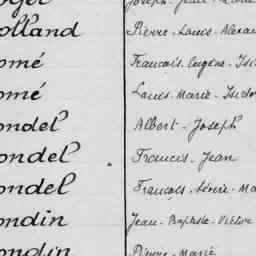 olland Pierre-Louis-Alexan
omé François-Eugène-Isi
omé Louis-Marie-Isido
ondel Albert-Joseph
ondel Francis-Jean
ondel François-Ma
ondin Jean-Baptiste-Victor
ondin Pierre-Marie